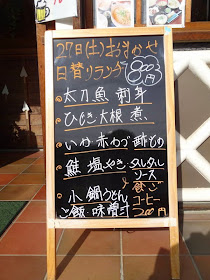 27日(土)おまかせ
日替りランチ 800円
・太刀魚 刺身
・ひじき大根 煮
・いか・赤わけぎ 酢もの
・鮭 塩やき・タルタル
ソース
・小鍋うどん
ご飯・味噌汁
食ご
コーヒー
200円